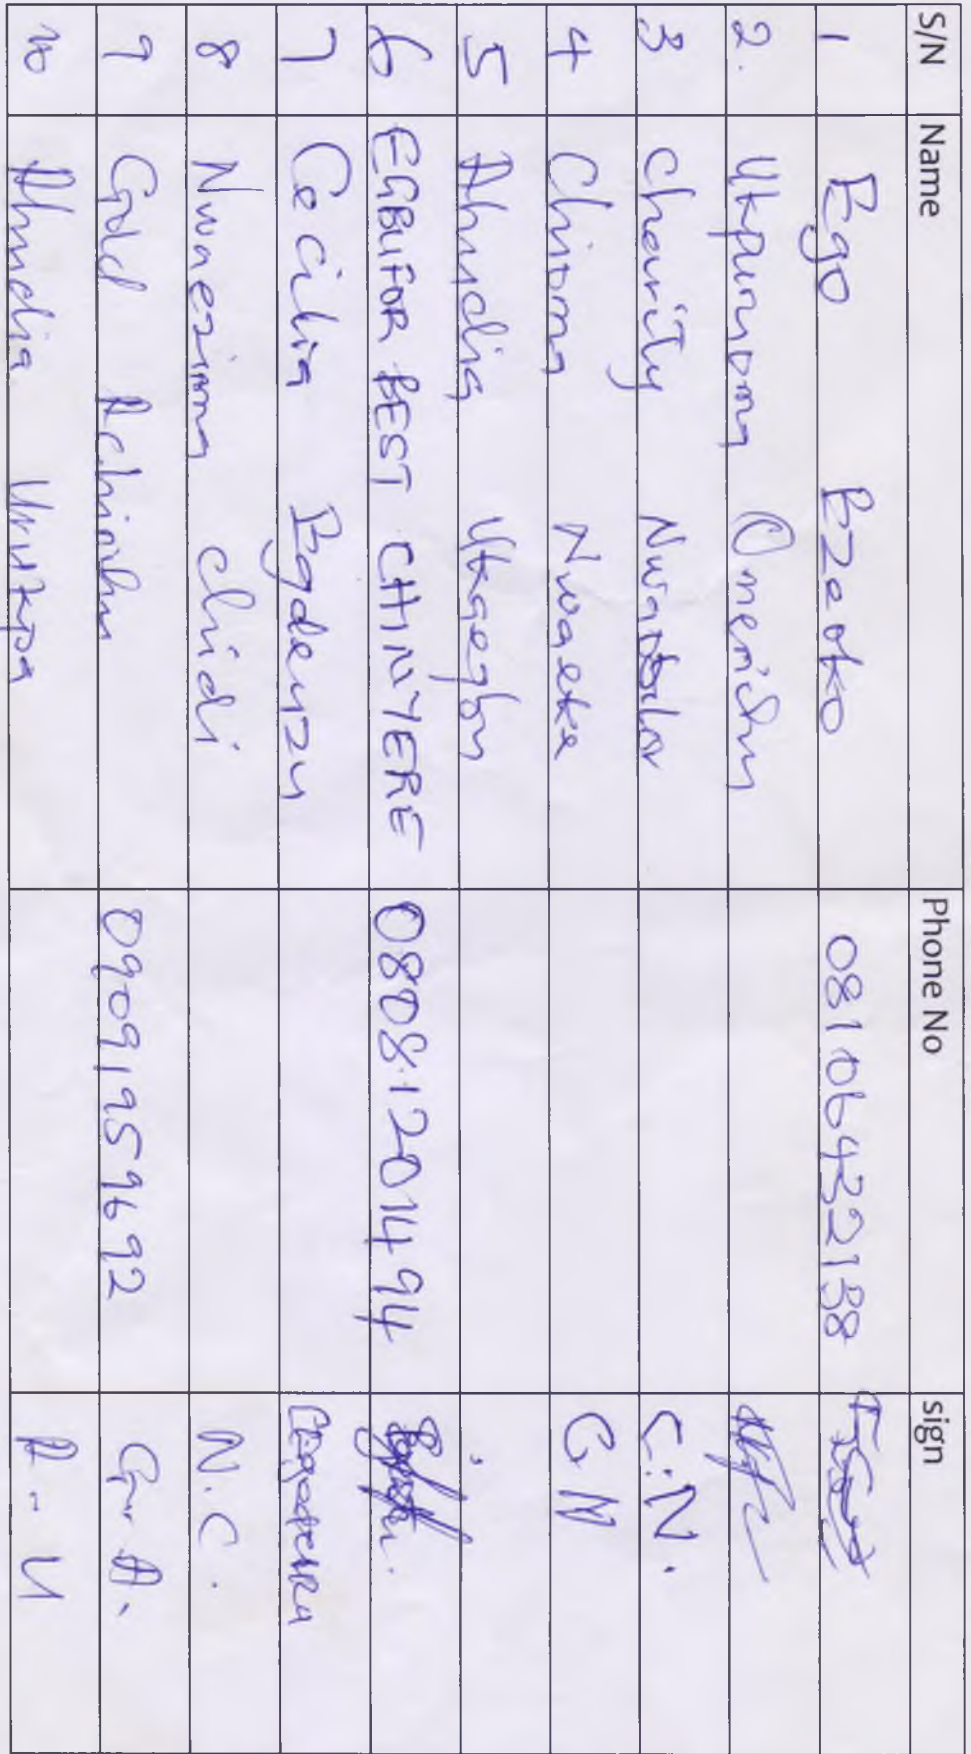 S/N Name Phone No sign
1 Ego Ezeoko 08106432138
2. Ukpunoma Omenichu
3 charity Nwandor C.N.
4 Chioma Nwaeke C.N
5 Ahudia Ukaegbu
6 EGBUFOR BEST CHINYERE 08081201494
7 Cecilia Egdeuzu
8 Nwaezioma chidi N.C.
9 Gold Achinihu 09091959692 G. A.
10 Ahudia Urukpa A.. U